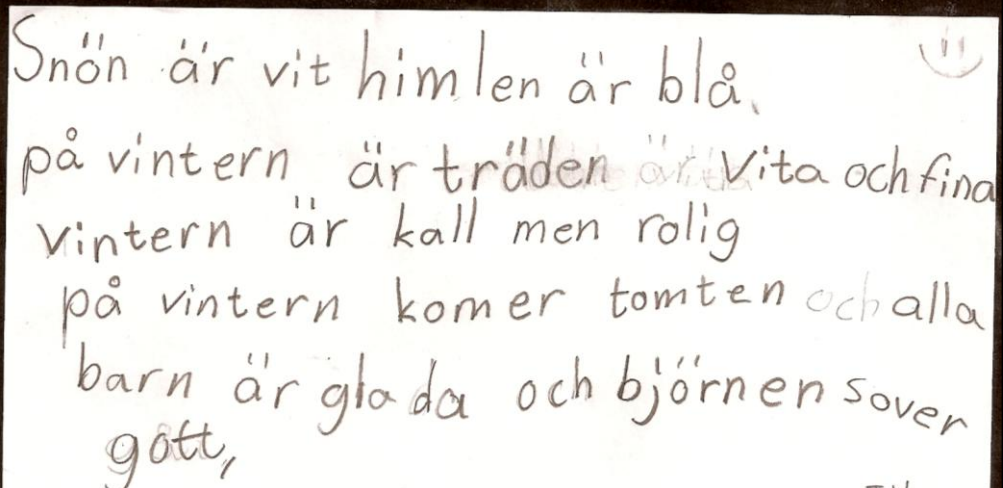 Snön är vit himlen är blå.
på vintern är träden vita och fina
vintern är kall men rolig
på vintern komer tomten och alla
barn är glada och björnen sover
gott,